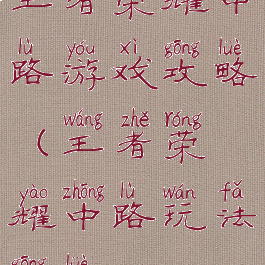 王者荣耀中
lù yóu xì gōng lüè
路游戏攻略
wáng zhě róng
（王者荣
yào zhōng lù wán fǎ
耀中路玩法
gōng lüè